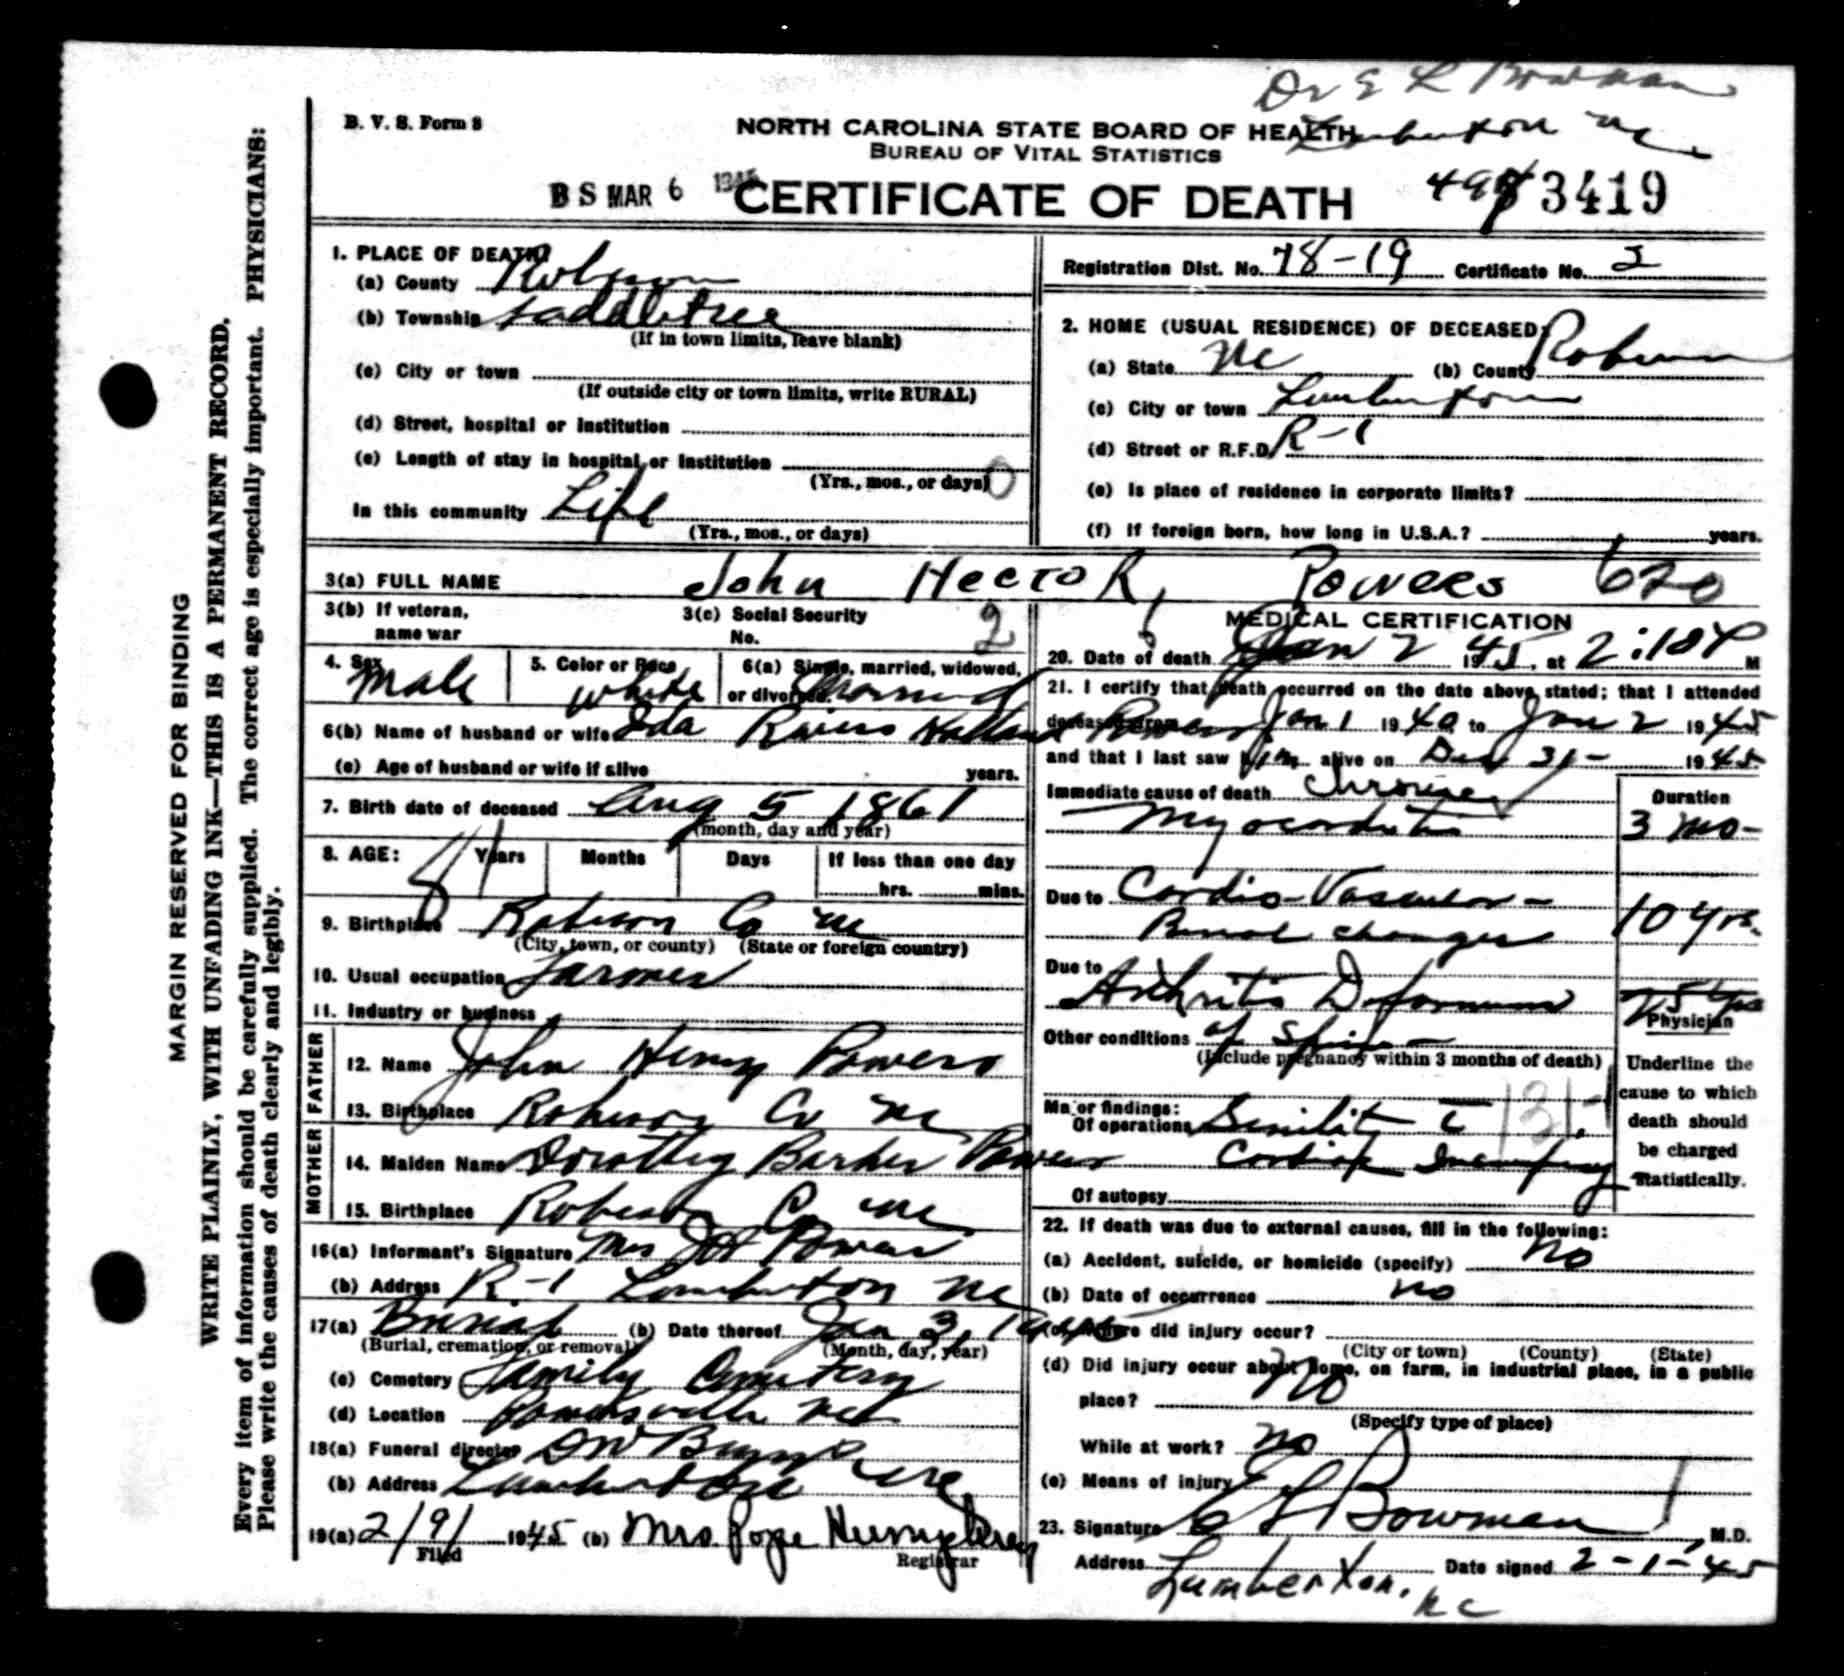 Dr E L Bowman
Lumberton NC
B. V. S. Form 8
NORTH CAROLINA STATE BOARD OF HEALTH
BUREAU OF VITAL STATISTICS
BS MAR 6 1945
CERTIFICATE OF DEATH
3419
MARGIN RESERVED FOR BINDING
WRITE PLAINLY, WITH UNFADING INK—THIS IS A PERMANENT RECORD.
Every item of information should be carefully supplied. The correct age is especially important. PHYSICIANS:
Please write the causes of death clearly and legibly.
1. PLACE OF DEATH:
(a) County Robeson
(b) Township Saddletree
(If in town limits, leave blank)
(c) City or town
(If outside city or town limits, write RURAL)
(d) Street, hospital or institution
(e) Length of stay in hospital or institution
(Yrs., mos., or days) 0
In this community Life
(Yrs., mos., or days)
Registration Dist. No. 78-19 Certificate No. 2
2. HOME (USUAL RESIDENCE) OF DECEASED:
(a) State NC (b) County Robeson
(c) City or town Lumberton
(d) Street or R.F.D. R-1
(e) Is place of residence in corporate limits?
(f) If foreign born, how long in U.S.A.? years.
3(a) FULL NAME John Hector, Powers 620
3(b) If veteran, name war
3(c) Social Security No. 2
4. Sex Male
5. Color or Race White
6(a) Single, married, widowed, or divorced. Married
6(b) Name of husband or wife Ida Powers
(c) Age of husband or wife if alive years.
7. Birth date of deceased Aug 5 1861
(month, day and year)
8. AGE: Years Months Days If less than one day
hrs. mins.
9. Birthplace Robeson Co NC
(City, town, or county) (State or foreign country)
10. Usual occupation Farmer
11. Industry or business
FATHER
12. Name John Henry Powers
13. Birthplace Robeson Co NC
MOTHER
14. Maiden Name Dorothy Barker Powers
15. Birthplace Robeson Co NC
16(a) Informant's Signature Mrs JH Powers
(b) Address R-1 Lumberton NC
17(a) Burial (b) Date thereof Jan 3, 1945
(Burial, cremation, or removal) (Month, day, year)
(c) Cemetery Family Cemetery
(d) Location Powersville NC
18(a) Funeral director
(b) Address Lumberton NC
19(a) 2/9/ 1945 (b) Mrs. Pope Humphrey
Filed Registrar
MEDICAL CERTIFICATION
20. Date of death Jan 2 1945, at 2:10 P M
21. I certify that death occurred on the date above stated; that I attended
deceased from Jan 1 1940 to Jan 2 1945
and that I last saw him alive on Dec 31- 1945
Immediate cause of death Chronic
Myocarditis
Duration
3 mo-
Due to Cardio-Vascular-
Renal changes
10 yrs.
Due to
Arthritis Deformans
25 yrs
Other conditions of Spine-
(Include pregnancy within 3 months of death)
Physician
Underline the
cause to which
death should
be charged
statistically.
Major findings:
Of operations Senility 131
Of autopsy
22. If death was due to external causes, fill in the following:
(a) Accident, suicide, or homicide (specify) no
(b) Date of occurrence no
(c) Where did injury occur?
(City or town) (County) (State)
(d) Did injury occur about home, on farm, in industrial place, in a public
place? no
(Specify type of place)
While at work? no
(e) Means of injury
23. Signature E L Bowman, M.D.
Address Lumberton, NC Date signed 2-1-45